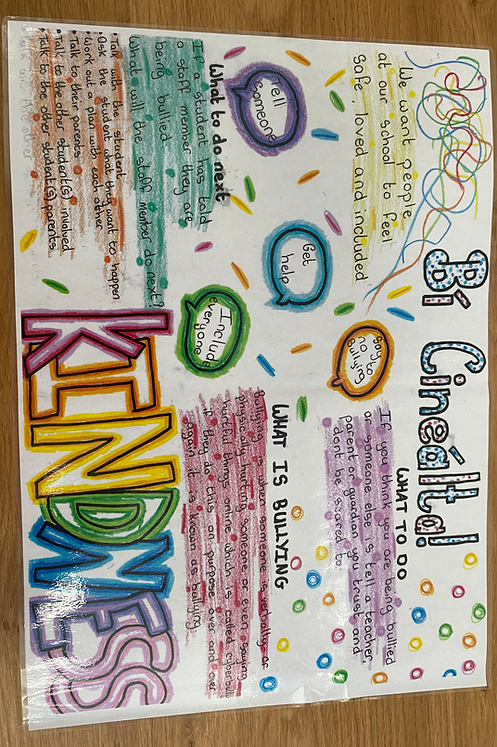 Bí Cineálta!
We want people
at our school to feel
Safe, loved and included
WHAT TO DO
If you think you are being bullied
or someone else is tell a teacher,
parent or guardian you trust and
dont be scared to
Tell
Someone
Get
help
Say to
no
bullying
Include
everyone
What to do next
If a student has told
a staff member they are
being bullied
What will the staff member do next?
•Talk with the student
•Ask the student what they want to happen
•Work out a plan with each other
•Talk to their parents
•Talk to the other student(s) involved
•Talk to the other student(s) parents
WHAT IS BULLYING
Bullying is when someone is verbally or
physically hurting someone or even saying
hurtful things online which is called cyberbully
if they do this on purpose over and over
again it is known as bullying
KINDNESS